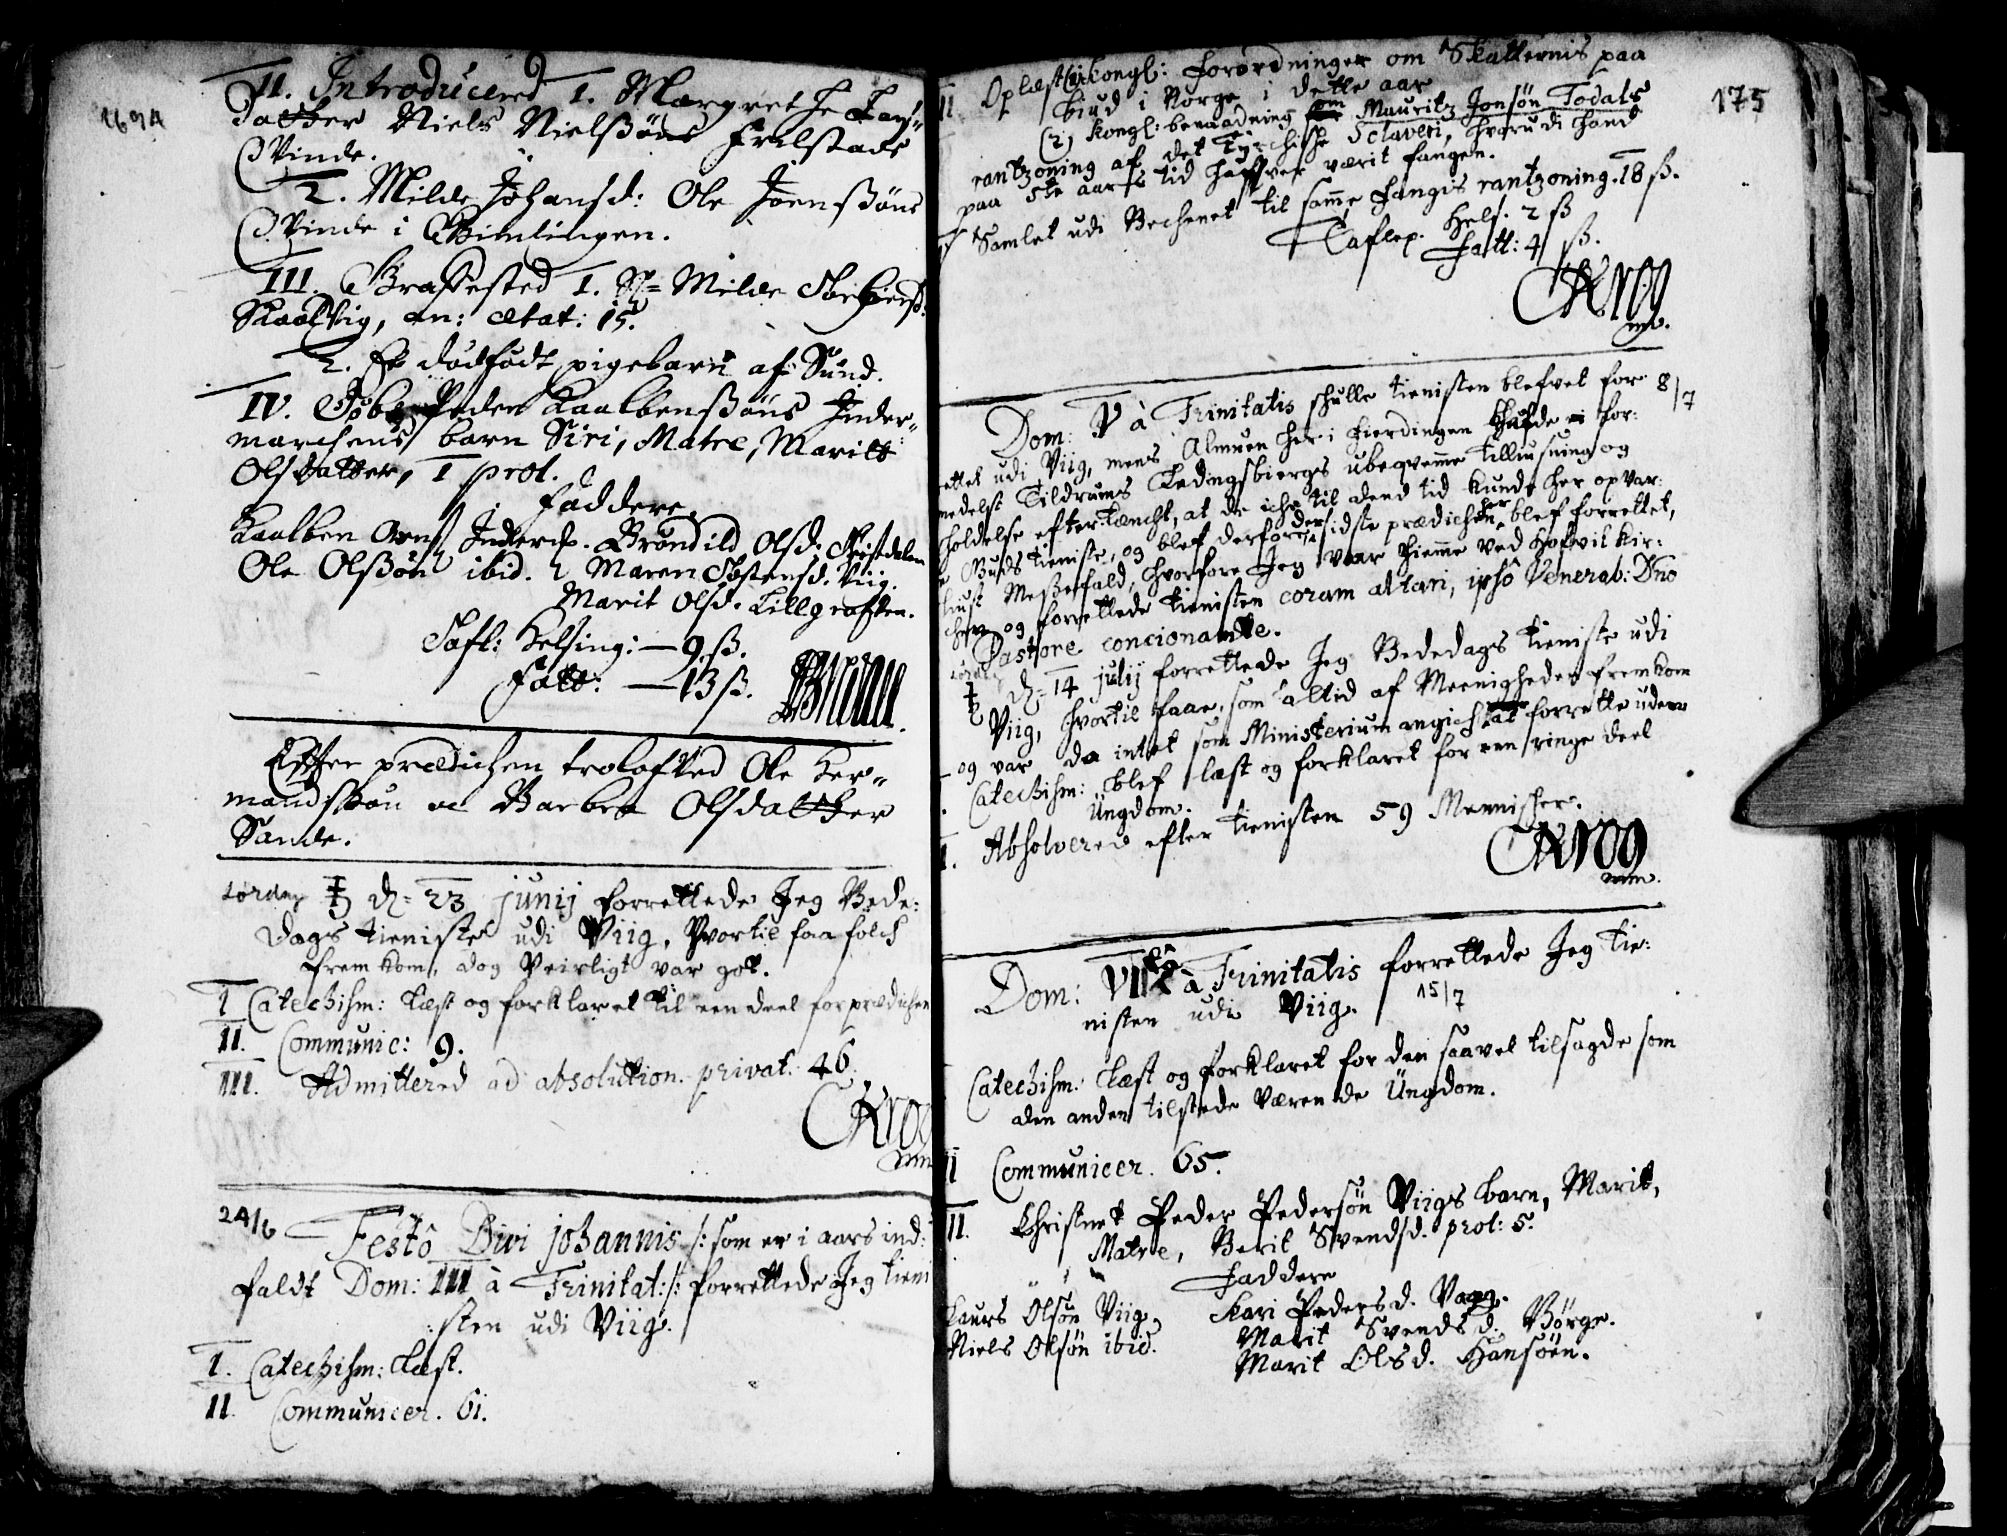 1694
II. Introducered 1. Margrethe Lars-
datter Niels Nielsøns Frilstads
Qvinde.
2. Milde Johansd: Ole Joensøns
Qvinde i Bimlingen.
III. Græssested 1. Sl= Milde
Skaalvig, an: ætat: 15.
2. Et dødfødt pigebarn af Sund.
IV. Døbt Peder Kaalbensøns Inder-
marchens barn Siri, Matre, Maritt
Olsdatter, I prol.
Faddere.
Kaalben Inderm. Brønild Olsd:
Ole Olsøn ibid. Maren Viig.
Marit Olsd. Lillgraften.
Tafl: Helsing: — 9 ß.
Fatt: — 13 ß.
Efter prædichen trolofved Ole Her-
mandsøn oc Barbra Olsdatter
Sande.
Lørdag ♄ d= 23 junij forrettede Jeg Bede:
dags tieniste udi Viig, hvortil faa folch
fremkom, dog Veirligt var got.
I Catechism: Læst og forklaret til een deel for prædichen
II. Communic: 9.
III. Admittered ad absolution. privat. 46.
CKrog
mm
24/6 Festô Divi johannis /: som er i aars ind:
faldt Dom: III à Trinitat: /: forrettede Jeg tieni
:sten udi Viig.
I. Catechism: Læst.
II Communicer. 61.
175
II. Oplæst (1) kongl: forordninger om Skatternis paa
biud i Norge i dette aar
(2) kongl: benaadning om Mauritz Jonsøn Todals
rantzoning af det Tyrchishe Sclaveri, hvorudi hand
paa 5te aars tid hafver værit fangen.
Samlet udi Bechenet til samme Fangis rantzoning. 18 ß.
Taflep. Hels. 2 ß
Fatt: 4 ß.
CKrog
mm.
Dom: V à Trinitatis skulle tienisten blefvet for 8/7
rettet udi Viig, mens Almuen her i Fierdingen hafde for:
medelst Tildrums Ledingsbiergs ubeqvemme tilliusning og
holdelse eftertæncht, at de iche til dend tid kunde her opvar:
te Guds tieniste, og blef derfore der sidste prædichen her blef forrettet,
liust Meßefald, hvorfore Jeg var hiemme ved Hofvit kir:
chen og forrettede tienisten coram altari, ipsô Venerab: Dño
Pastore concionante.
Lørdag
♄ d= 14 julij forrettede Jeg Bededags tieniste udi
Viig, hvortil faae, som altid af Meenigheden fremkom
og var da intet som Ministerium angich at forrette uden
Catechism: blef læst og forklaret for een ringe deel
Ungdom.
I. Absolvered efter tienisten 59 Mennischer.
CKrog
mm.
Dom: VI à Trinitatis forrettede Jeg tie:
nisten udi Viig. 15/7
Catechism: Læst og forklaret for den saavel tilsagde som
den anden tilstede værende Ungdom.
II Communicer. 65.
II. Christnet Peder Pedersøn Viigs barn, Marit,
Matre, Berit Svendsd. prol: 5.
Faddere
Laurs Olsøn Viig, Kari Pedersd. Vagg.
Niels Olsøn ibid. Marit Svendsd. Børge.
Marit Olsd. Hansøen.